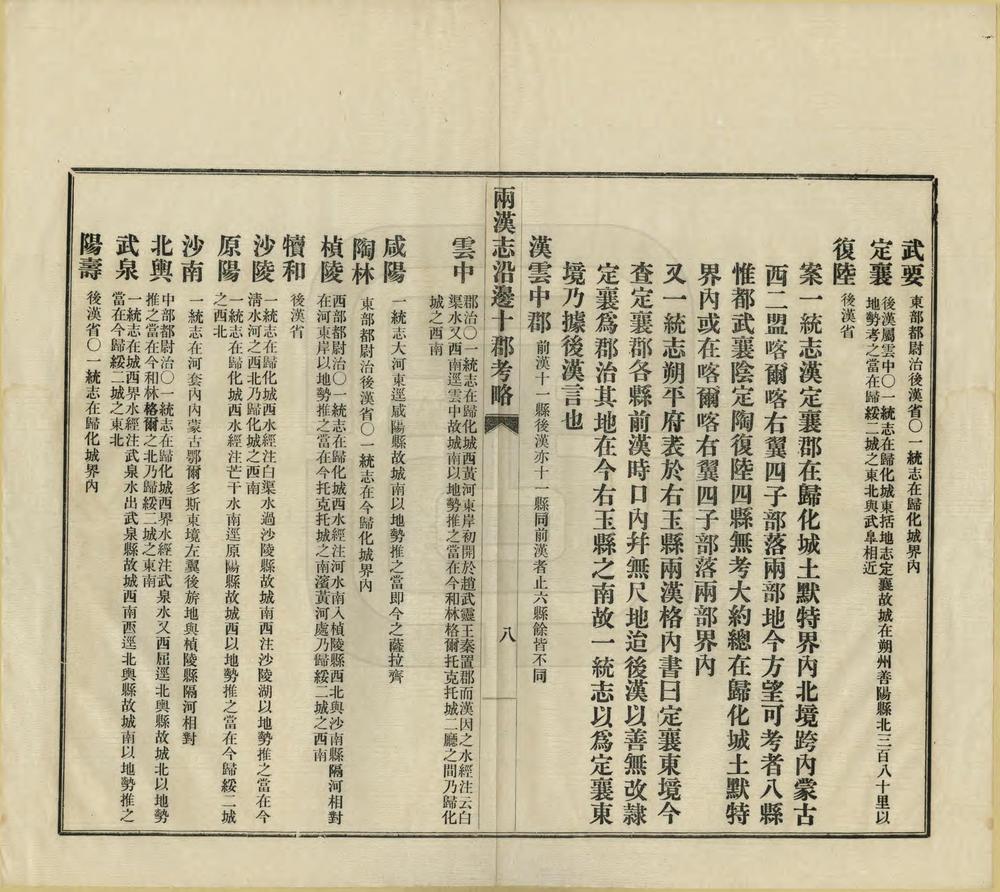 武要 東部都尉治後漢省〇一統志在歸化城界內
定襄 後漢屬雲中〇一統志在歸化城東括地志定襄故城在朔州善陽縣北三百八十里以
地勢考之當在歸綏二城之東北與武臯相近
復陸 後漢省
案一統志漢定襄郡在歸化城土默特界內北境跨內蒙古
西二盟喀爾喀右翼四子部落兩部地今方望可考者八縣
惟都武襄陰定陶復陸四縣無考大約總在歸化城土默特
界內或在喀爾喀右翼四子部落兩部界內
又一統志朔平府表於右玉縣兩漢格內書曰定襄東境今
查定襄郡各縣前漢時口內幷無尺地迨後漢以善無改隸
定襄爲郡治其地在今右玉縣之南故一統志以爲定襄東
境乃據後漢言也
漢雲中郡 前漢十一縣後漢亦十一縣同前漢者止六縣餘皆不同
兩漢志沿邊十郡考略 八
雲中 郡治〇一統志在歸化城西黃河東岸初開於趙武靈王秦置郡而漢因之水經注云白
渠水又西南逕雲中故城南以地勢推之當在今和林格爾托克托城二廳之間乃歸化
城之西南
咸陽 一統志大河東逕咸陽縣故城南以地勢推之當卽今之薩拉齊
陶林 東部都尉治後漢省〇一統志在今歸化城界內
楨陵 西部都尉治〇一統志在歸化城西水經注河水南入楨陵縣西北與沙南縣隔河相對
在河東岸以地勢推之當在今托克托城之南濱黃河處乃歸綏二城之西南
犢和 後漢省
沙陵 一統志在歸化城西水經注白渠水過沙陵縣故城南西注沙陵湖以地勢推之當在今
淸水河之西北乃歸化城之西南
原陽 一統志在歸化城西水經注芒干水南逕原陽縣故城西以地勢推之當在今歸綏二城
之西北
沙南 一統志在河套內內蒙古鄂爾多斯東境左翼後旂地與楨陵縣隔河相對
北輿 中部都尉治〇一統志在歸化城西界水經注武泉水又西屈逕北輿縣故城北以地勢
推之當在今和林格爾之北乃歸綏二城之東南
武泉 一統志在城西界水經注武泉水出武泉縣故城西南西逕北輿縣故城南以地勢推之
當在今歸綏二城之東北
陽壽 後漢省〇一統志在歸化城界內